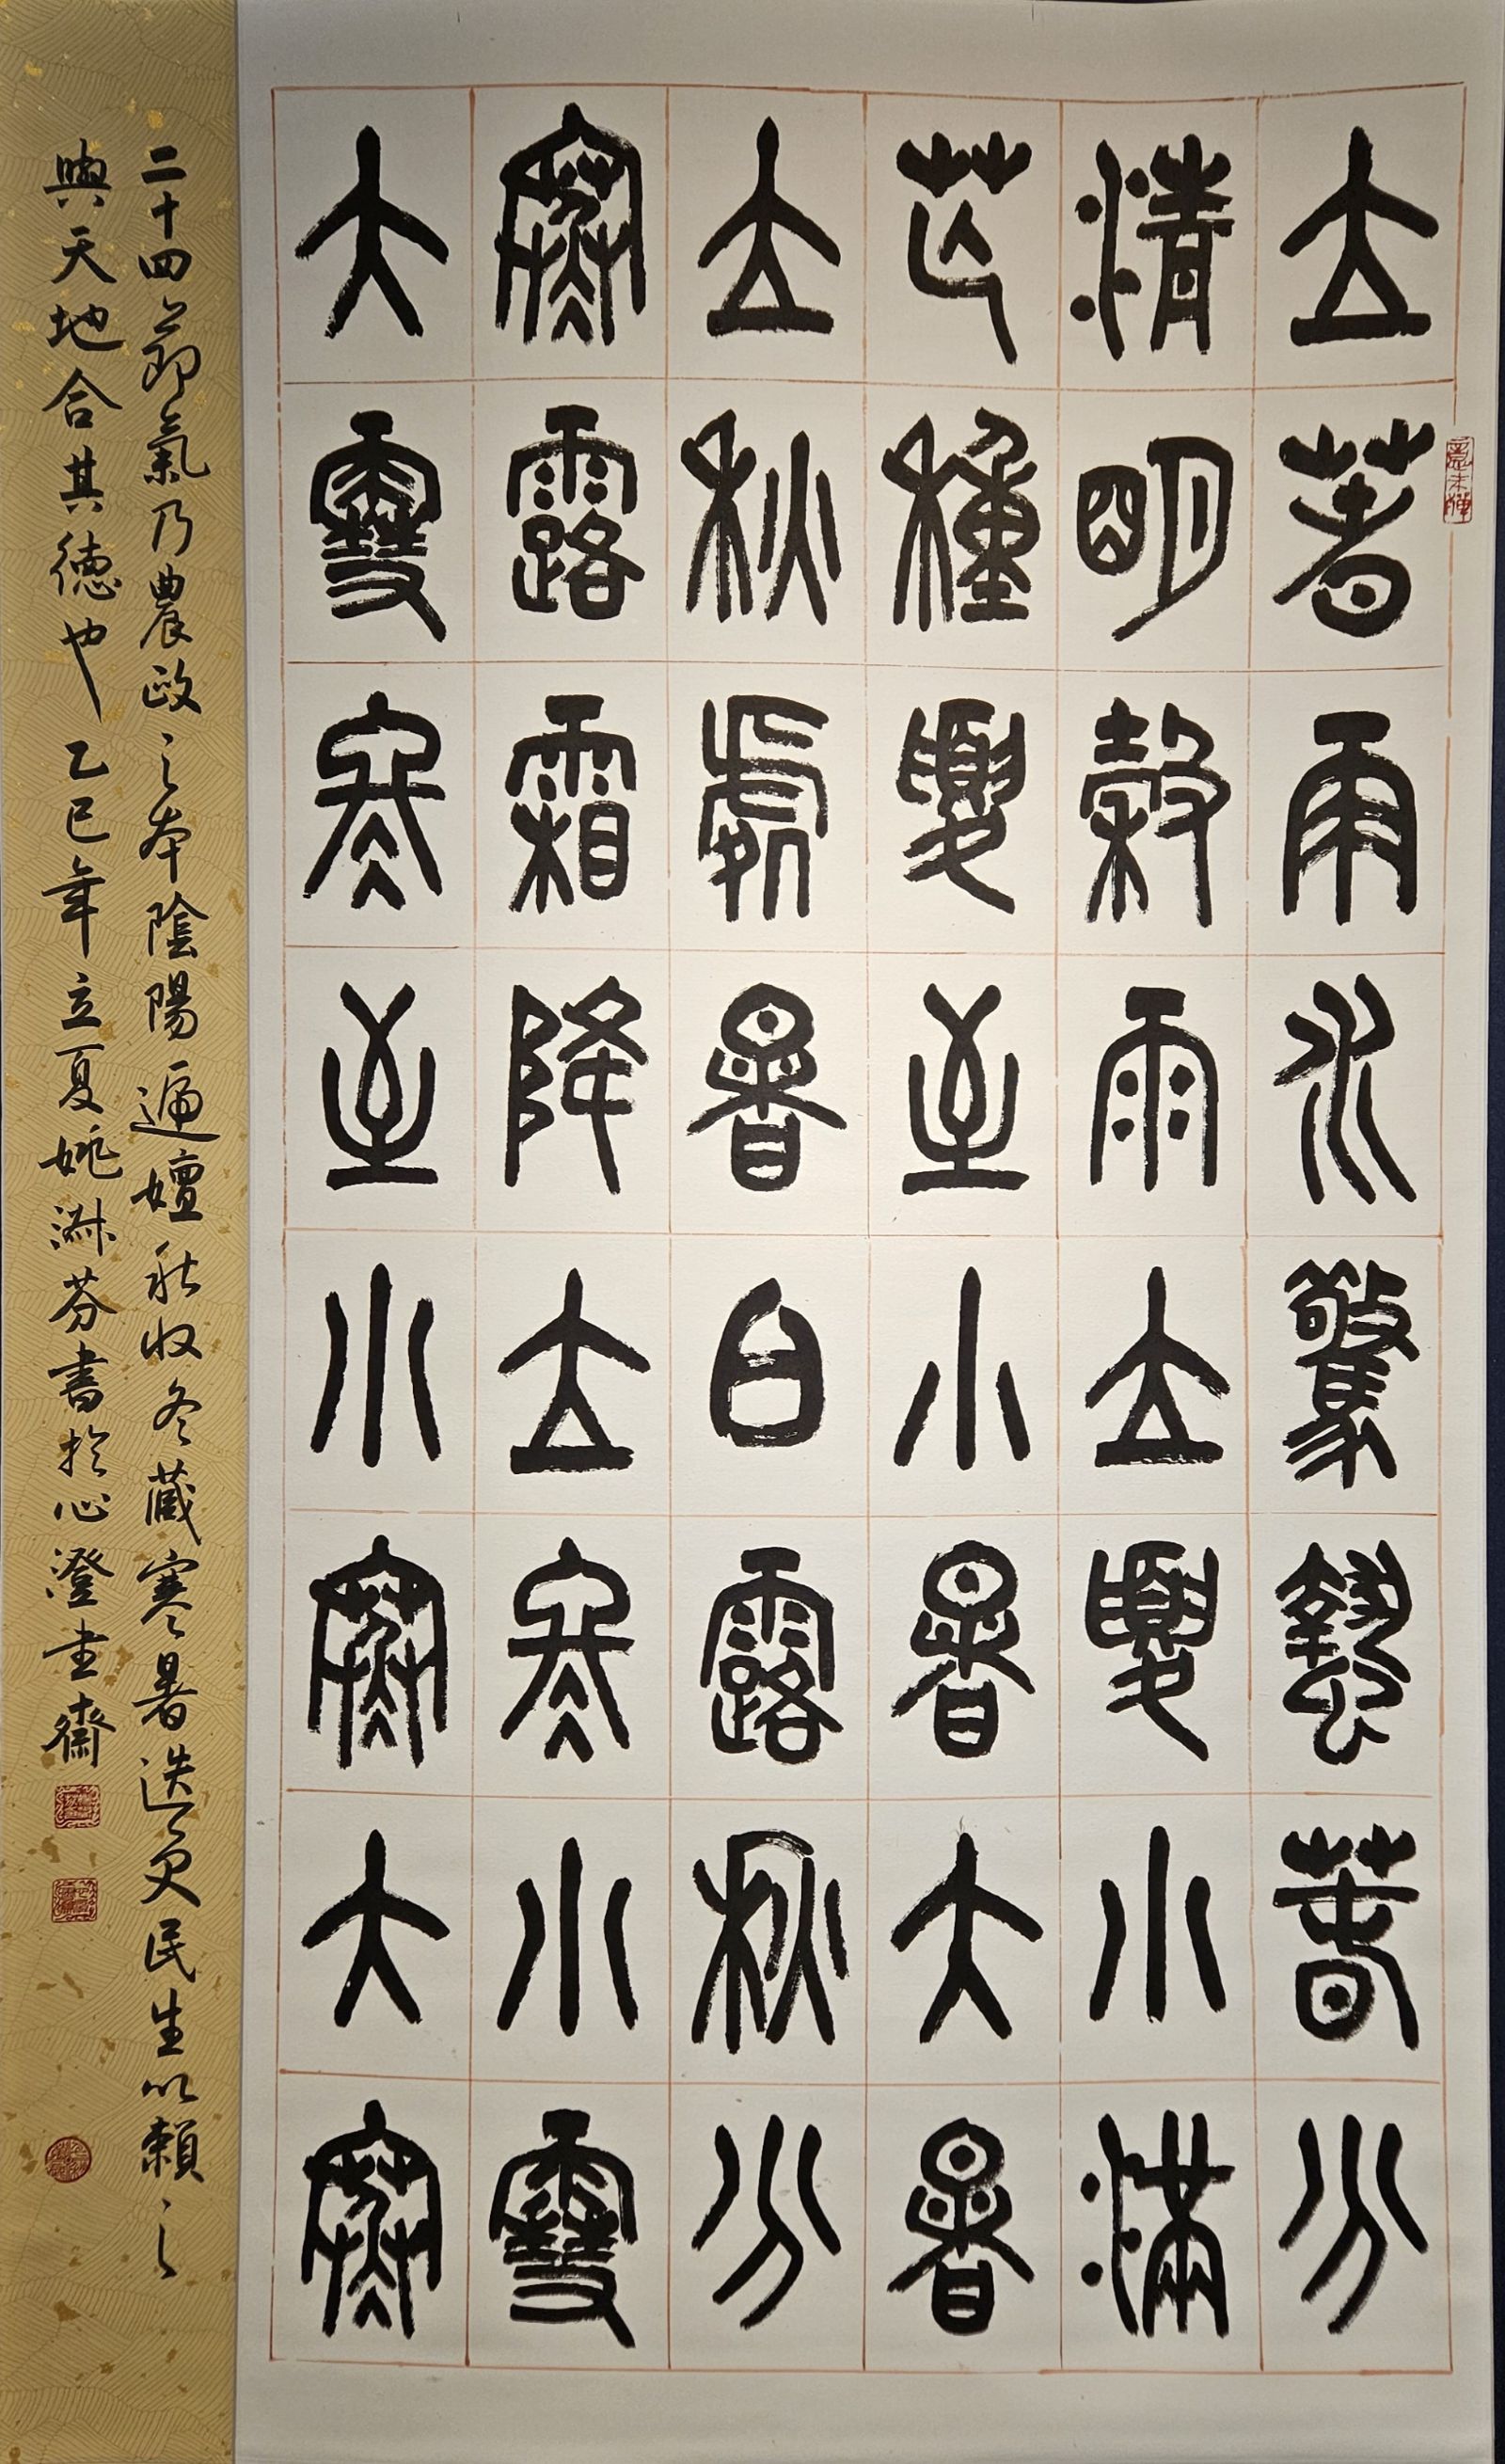 立春雨水驚蟄春分
清明穀雨立夏小滿
芒種夏至小暑大暑
立秋處暑白露秋分
寒露霜降立冬小雪
大雪冬至小寒大寒
二十四節氣乃農政之本陰陽遞嬗秋收冬藏寒暑迭更民生以賴之
與天地合其德也乙巳年立夏姚淑芬書於心澄書齋